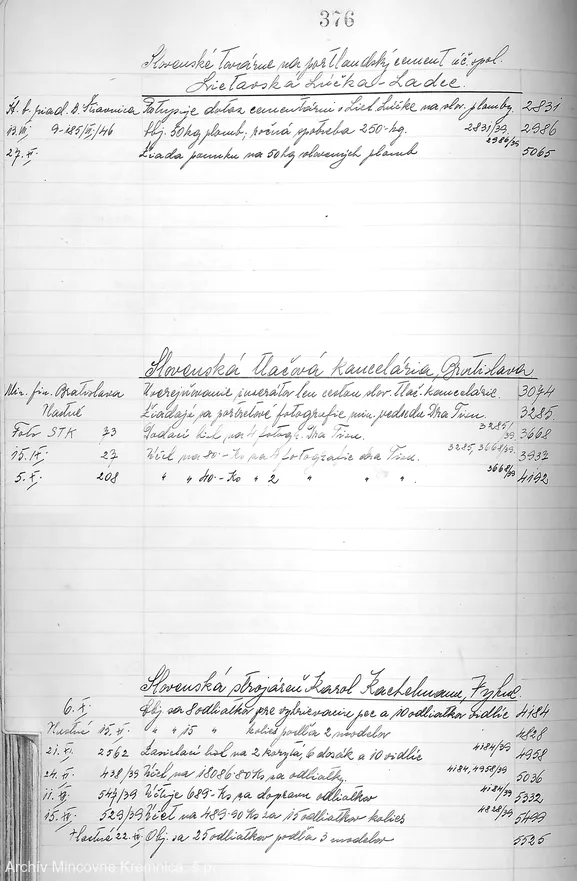 376
Slovenské továrne na portlandský cement úč. spol.
Lietavská Lúčka-Ladce.
Št. b. riad. B. Štiavnica dotaz cementární v Liet. Lúčke na slov. plomby. 2831
13.III. 9-185/II/46 Obj. 50 kg plomb, ročná potreba 250-kg. 2831/39 2986
27.XI. Žiada ponuku na 50 kg olovených plomb 2986/39 5065
Slovenská tlačová kancelária, Bratislava
Min. fin. Bratislava Uverejňovanie inzerátov len cestou slov. tlač. kancelárie. 3074
Vlastné Žiadajú sa portrétové fotografie min. predsedu Dra Tisu. 3285
Foto STK 73 Dodací list na 4 fotogr. Dra Tisu. 3285/39 3668
15.IX. 27 Účet na 80·- Ks na 4 fotografie dra Tisu. 3285, 3668/39. 3937
5.X. 208 " " 40·- Ks " 2 " " " 3668/39 4192
Slovenská strojáreň Karol Kachelmann, Vyhne.
6.X. Obj. sa 8 odliatkov pre vyhrievanie pec a 10 odliatkov vidlíc 4184
Vlastné 15.XI. " " 15 " kolies podľa 2 modelov 4828
21.XI. 2562 Zasielací list na 2 korytá, 6 dosák a 10 vidlíc 4184/39 4958
24.XI. 438/39 Účet na 18086·80 Ks za odliatky. 4184, 4958/39 5036
11.XII. 547/39 Účtuje 689·- Ks za dopravu odliatkov 4184/39 5332
15.XII. 529/39 Účet na 489·90 Ks za 15 odliatkov kolies 4828/39 5499
Vlastné 22.XII. Obj. sa 25 odliatkov podľa 3 modelov 5525
Archív Mincovne Kremnica, š.p.